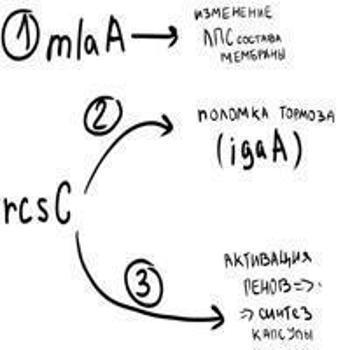 ① mlaA → ИЗМЕНЕНИЕ
ЛПС СОСТАВА
МЕМБРАНЫ
② ПОЛОМКА ТОРМОЗА
(igaA)
rcsC
③ АКТИВАЦИЯ
ГЕНОВ =>
=> СИНТЕЗ
КАПСУЛЫ